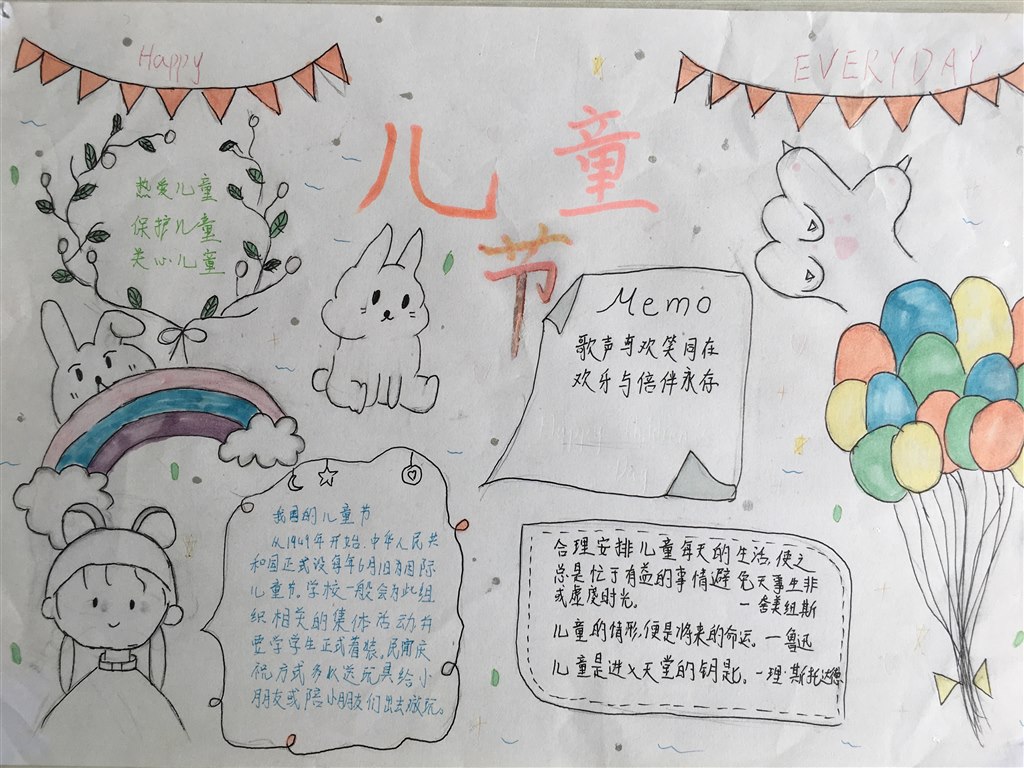 Happy
EVERYDAY
儿童
节
热爱儿童
保护儿童
关心儿童
Memo
歌声与欢笑同在
欢乐与倍伴永存
我国的儿童节
从1949年开始,中华人民共
和国正式设每年6月1日为国际
儿童节。学校一般会为此组
织相关的集体活动并
要学学生正式着装,民间庆
祝方式多以送玩具给小
朋友或陪小朋友们出去游玩。
合理安排儿童每天的生活,使之
总是忙于有益的事情避免无事生非
或虚度时光。
一 夸美纽斯
儿童的情形,便是将来的命运。一鲁迅
儿童是进入天堂的钥匙。一理·斯托达德